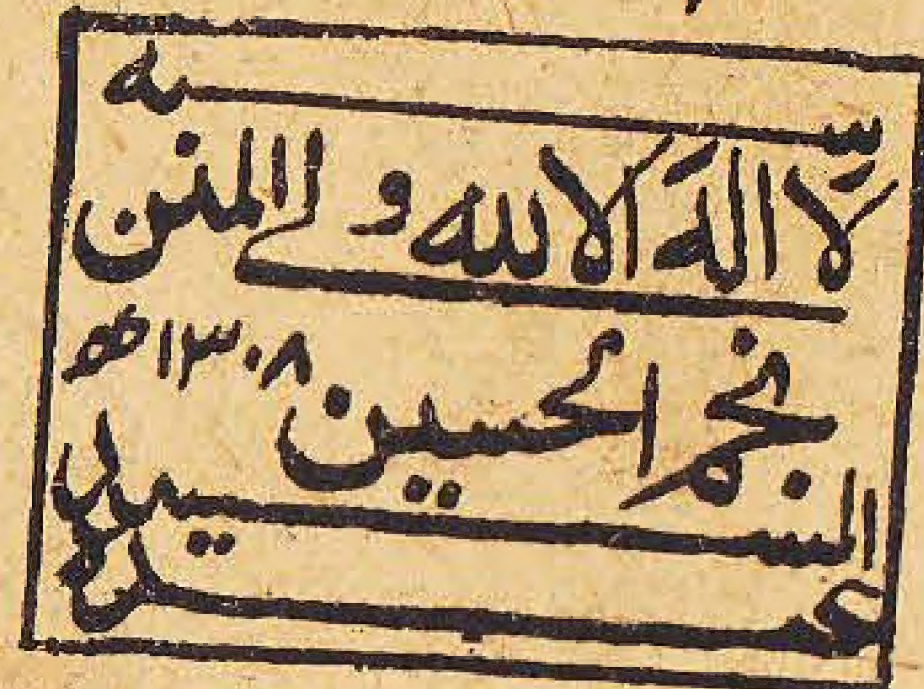 لا اله الا الله ولے المنن
نجم الحسین ۱۳۰۸ھ
السید
عبده